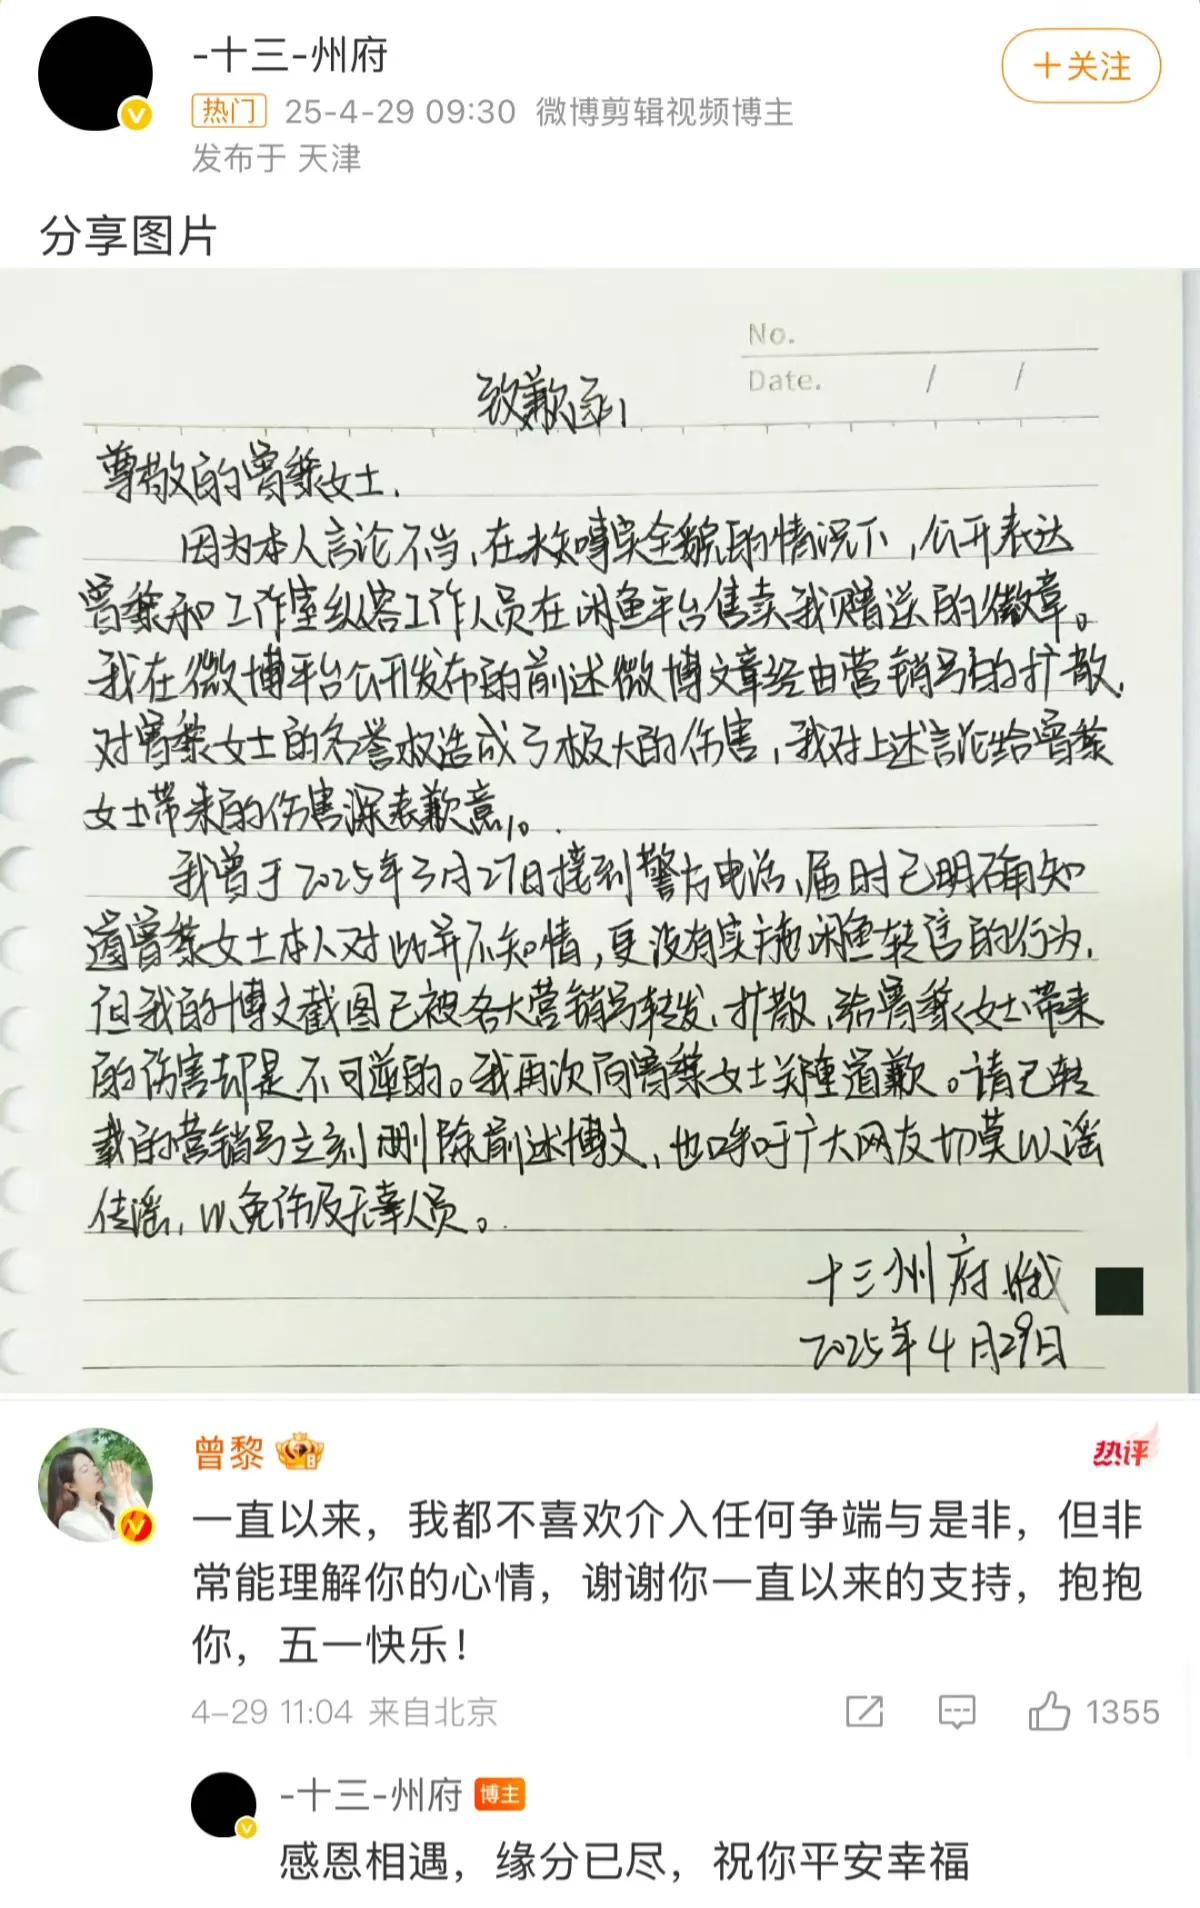 -十三-州府
+关注
热门 25-4-29 09:30 微博剪辑视频博主
发布于 天津
分享图片
No.
Date. / /
致歉函
尊敬的曾黎女士,
因为本人言论不当,在未知事实全貌的情况下,公开表达
曾黎和工作室纵容工作人员在闲鱼平台售卖我赠送的徽章。
我在微博平台公开发布的前述微博文章经由营销号的扩散,
对曾黎女士的名誉权造成了极大的伤害,我对上述言论给曾黎
女士带来的伤害深表歉意。
我曾于2025年3月27日接到警方电话,届时已明确知
道曾黎女士本人对此并不知情,更没有实施闲鱼转售的行为,
但我的博文截图已被各大营销号转发、扩散,给曾黎女士带来
的伤害却是不可逆的。我再次向曾黎女士郑重道歉。请已转
载的营销号立刻删除前述博文,也呼吁广大网友切莫以谣
传谣,以免伤及无辜人员。
十三州府
2025年4月29日
曾黎
热评
一直以来,我都不喜欢介入任何争端与是非,但非
常能理解你的心情,谢谢你一直以来的支持,抱抱
你,五一快乐!
4-29 11:04 来自北京
1355
-十三-州府 博主
感恩相遇,缘分已尽,祝你平安幸福